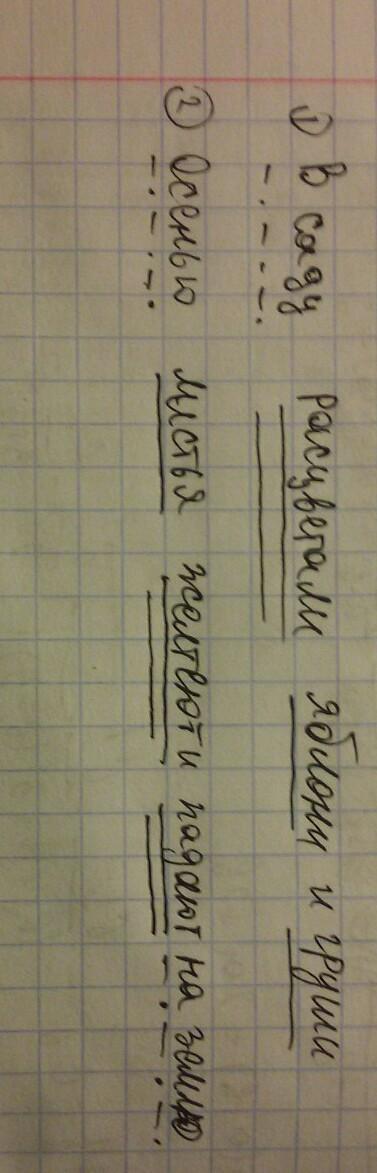 ① В саду расцветали яблони и груши
② Осенью листья желтеют и падают на землю